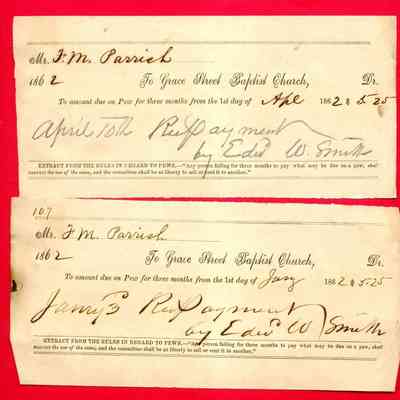 Mr. F. M. Parrish
1862 To Grace Street Baptist Church, Dr.
To amount due on Pew for three months from the 1st day of Apl 1862 $ 5.25
April 10th Rec payment
by Edwd W. Smith
EXTRACT FROM THE RULES IN REGARD TO PEWS.—"Any person failing for three months to pay what may be due on a pew, shall
forfeit the use of the same, and the committee shall be at liberty to sell or rent it to another."
107
Mr. F. M. Parrish
1862 To Grace Street Baptist Church, Dr.
To amount due on Pew for three months from the 1st day of Jany 1862 $ 5.25
Janry 3 Rec payment
by Edwd W Smith
EXTRACT FROM THE RULES IN REGARD TO PEWS.—"Any person failing for three months to pay what may be due on a pew, shall
forfeit the use of the same, and the committee shall be at liberty to sell or rent it to another."